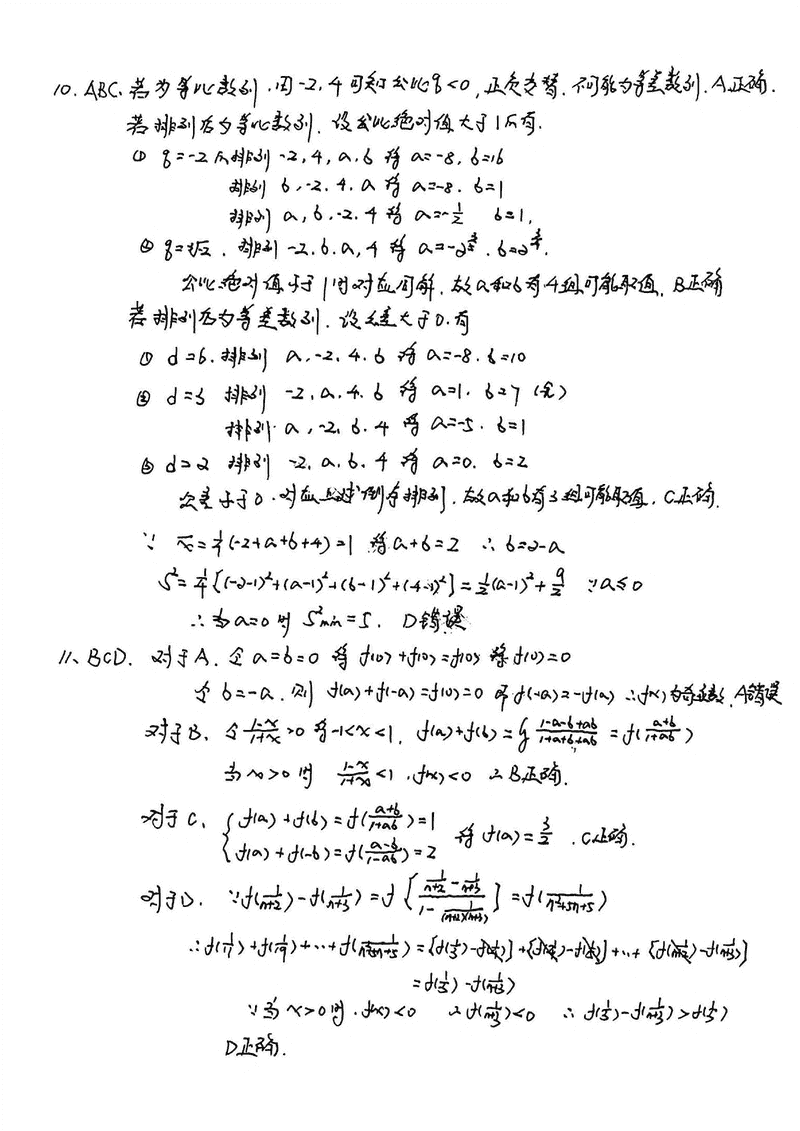 10. ABC. 若为等比数列,因-2,4可知公比q<0,正负交替,不可能为等差数列,A正确.
若排列后为等比数列,设公比绝对值大于1后有.
① q=-2 有排列 -2, 4, a, b 得 a=-8, b=16
排列 b, -2, 4, a 得 a=-8, b=1
排列 a, b, -2, 4 得 a=-1/2 b=1,
② 排列 -2, b, a, 4 得
公比绝对值小于1时对应同解,故a和b有4组可能取值,B正确
若排列后为等差数列,设公差大于0,有
① d=6, 排列 a, -2, 4, b 得 a=-8, b=10
② d=3 排列 -2, a, 4, b 得 a=1, b=7 (舍)
排列 a, -2, b, 4 得 a=-5, b=1
③ d=2 排列 -2, a, b, 4 得 a=0, b=2
公差小于0,对应上述倒序排列,故a和b有3组可能取值,C正确.
∵ x̄=1/4(-2+a+b+4)=1 得 a+b=2 ∴ b=2-a
S²=1/4[(-2-1)²+(a-1)²+(b-1)²+(4-1)²]=1/2(a-1)²+9/2 ∵a≤0
∴当a=0时 S²min=5, D错误
11、BCD. 对于A, 令 a=b=0 得 f(0)+f(0)=f(0) 得 f(0)=0
令 b=-a, 则 f(a)+f(-a)=f(0)=0 即 f(-a)=-f(a) ∴f(x)为奇函数,A错误
对于B, 令 (1-x)/(1+x)>0 得 -1<x<1, f(a)+f(b)=lg (1-a-b+ab)/(1+a+b+ab) = f((a+b)/(1+ab))
当x>0时 (1-x)/(1+x)<1, f(x)<0 ∴B正确.
对于C, { f(a)+f(b)=f((a+b)/(1+ab))=1
f(a)+f(-b)=f((a-b)/(1-ab))=2 得 f(a)=3/2, C正确.
对于D, ∵f(1/(n+2))-f(1/(n+3))=f[(1/(n+2)-1/(n+3))/(1-1/((n+2)(n+3)))]=f(1/(n²+5n+5))
∴f(1/11)+f(1/19)+…+f(1/(n²+5n+5))=[f(1/3)-f(1/4)]+[f(1/4)-f(1/5)]+…+[f(1/(n+2))-f(1/(n+3))]
=f(1/3)-f(1/(n+3))
∵当x>0时, f(x)<0 ∴f(1/(n+3))<0 ∴ f(1/3)-f(1/(n+3))>f(1/3)
D正确.